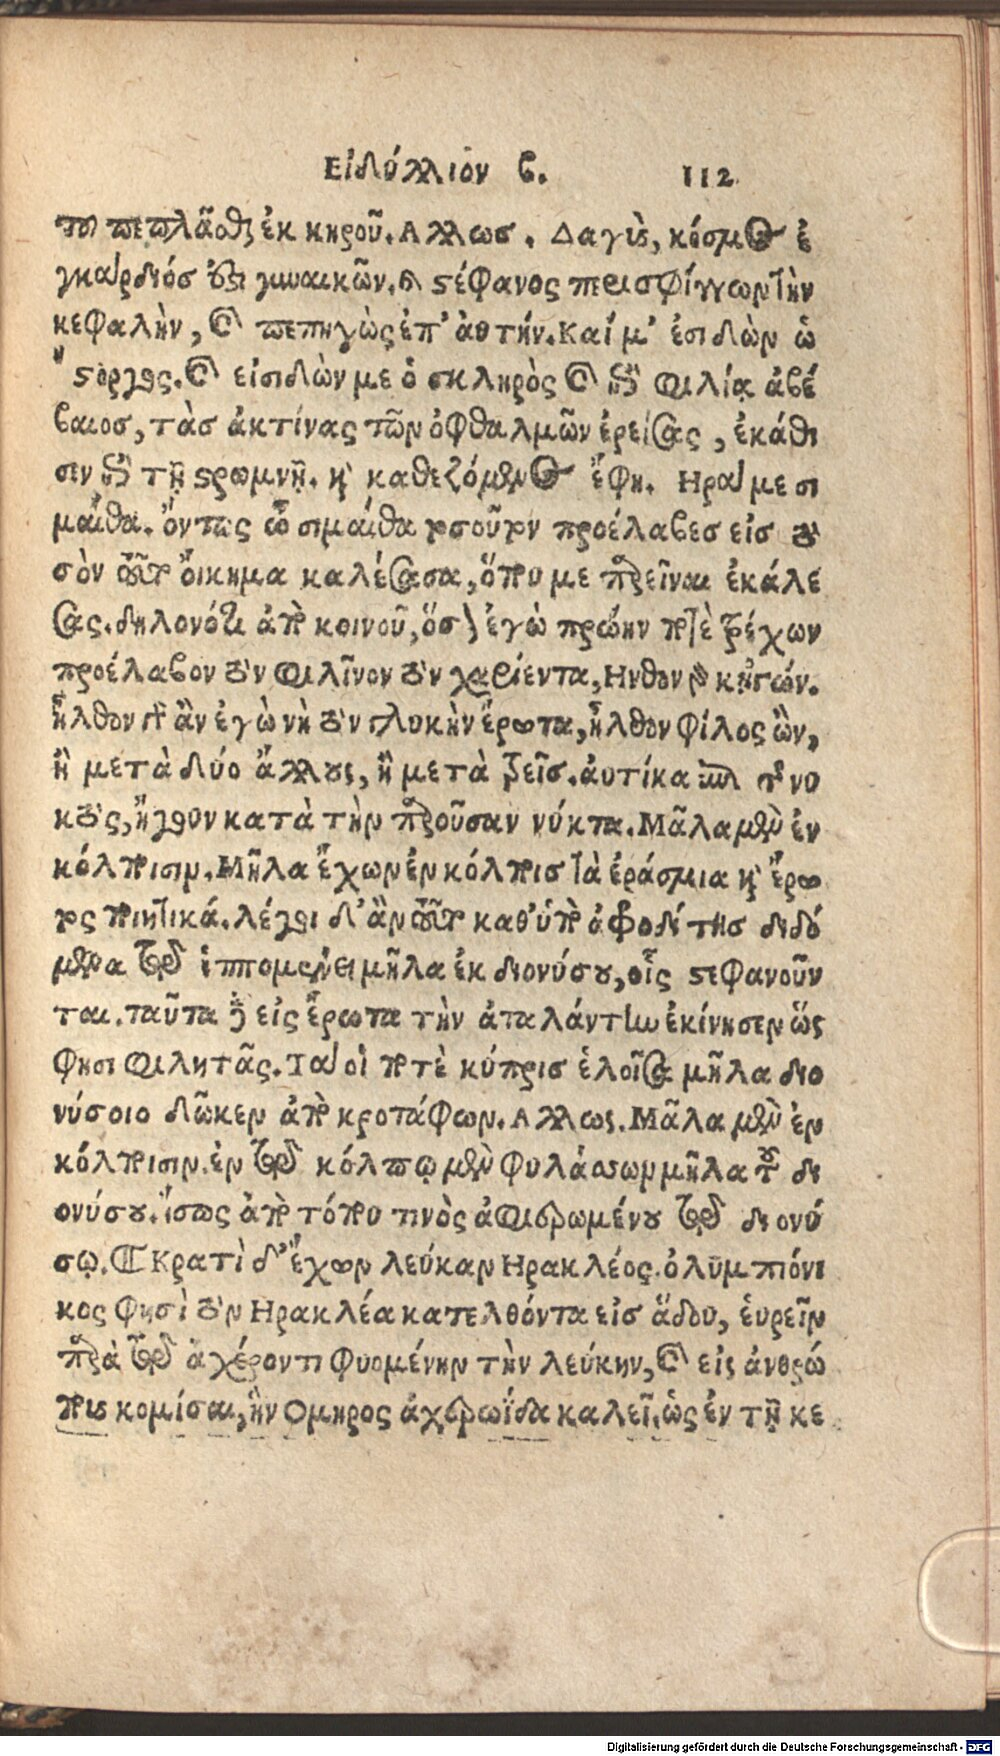 Εἰδύλλιον β. 112
τὸ πεπλᾶσθαι ἐκ κηροῦ. Αλλως. Δαγὺς, κόσμος ἐ
γκάρδιός γυναικῶν. στέφανος περισφίγγων τὴν
κεφαλὴν, καὶ πεπηγὼς ἐπ' ἀυτήν. Καί μ' ἐσιδὼν ὡ
"στοργος. καὶ εἰσιδὼν με ὁ σκληρὸς καὶ ἐν φιλίᾳ ἀβέ
βαιος, τὰς ἀκτίνας τῶν ὀφθαλμῶν ἐρείσας, ἐκάθι
σεν ἐν τῇ στρωμνῇ. καὶ καθεζόμενος ἔφη. Ηρα με σι
μαίθα. ὄντως ὦ σιμαίθα τοσοῦτον προέλαβες εἰς τὸ
σὸν τοῦτο ὄικημα καλέσασα, ὅπου με παρεῖναι ἐκάλε
σας. δηλονότι ἀπὸ κοινοῦ, ὅσον ἐγὼ πρώην ποτὲ τρέχων
προέλαβον τὸν φιλῖνον τὸν χαρίεντα, Ηνθον γὰρ κἠγών.
ἦλθον γὰρ ἂν ἐγὼ νὴ τὸν γλυκὴν ἔρωτα, ἦλθον φίλος ὢν,
ἢ μετὰ δύο ἄλλους, ἢ μετὰ τρεῖς. ἀυτίκα νυ
κτὸς, ἤγουν κατὰ τὴν παροῦσαν νύκτα. Μᾶλα μὲν ἐν
κόλποισιν. Μῆλα ἔχων ἐν κόλποις τὰ ἐράσμια καὶ ἔρω
τος ποιητικά. λέγοι δ' ἂν τοῦτο καθ' ὑπὸ ἀφροδίτης διδό
μενα τῷ ἱππομένει μῆλα ἐκ διονύσου, οἷς στεφανοῦν
ται. ταῦτα δὲ εἰς ἔρωτα τὴν ἀταλάντην ἐκίνησεν ὥς
φησι φιλητᾶς. Τά οἱ ποτὲ κύπρις ἑλοῖσα μῆλα διο
νύσοιο δῶκεν ἀπὸ κροτάφων. Αλλως. Μᾶλα μὲν ἐν
κόλποισιν. ἐν τῷ κόλπῳ μὲν φυλάσσων μῆλα τοῦ δι
ονύσου. ἴσως ἀπὸ τόπου τινὸς ἀφιερωμένου τῷ διονύ
σῳ. ¶ Κρατὶ δ' ἔχων λεύκαν Ηρακλέος. ὀλυμπιόνι
κος φησὶ τὸν Ηρακλέα κατελθόντα εἰς ἅδου, ἑυρεῖν
παρὰ τῷ ἀχέροντι φυομένην τὴν λεύκην, καὶ εἰς ἀνθρώ
πους κομίσαι, ἣν Ομηρος ἀχερωΐδα καλεῖ. ὡς ἐν τῇ κε
Digitalisierung gefördert durch die Deutsche Forschungsgemeinschaft - DFG